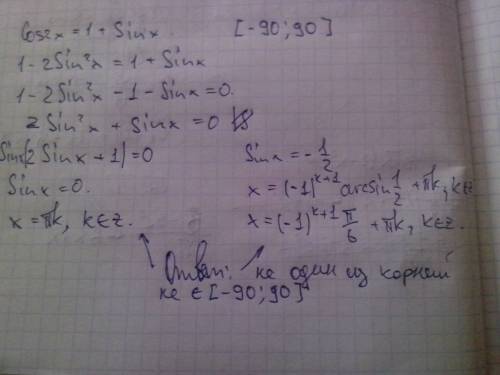 Cos2x = 1 + Sinx. [-90; 90]
1 - 2Sin²x = 1 + Sinx
1 - 2Sin²x - 1 - Sinx = 0.
2Sin²x + Sinx = 0
Sinx(2Sinx + 1) = 0 Sinx = -1/2
Sinx = 0. x = (-1)^{k+1} arcsin 1/2 + πk, k∈z
x = πk, k∈z. x = (-1)^{k+1} π/6 + πk, k∈z.
Ответ: не один из корней
не ∈ [-90; 90]